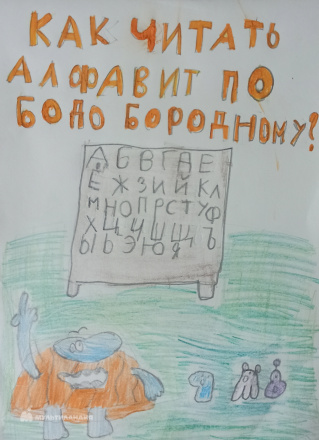 КАК ЧИТАТЬ
АЛФАВИТ ПО
БОДО БОРОДНОМУ?
А Б В Г Д Е
Ё Ж З И Й К Л
М Н О П Р С Т У Ф
Х Ц Ч Ш Щ Ъ
Ы Ь Э Ю Я